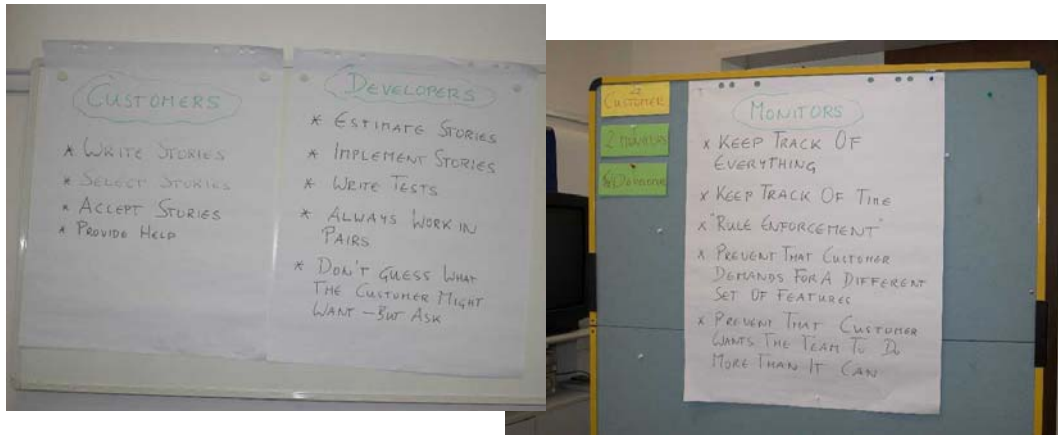 CUSTOMERS
* WRITE STORIES
* SELECT STORIES
* ACCEPT STORIES
* PROVIDE HELP
DEVELOPERS
* ESTIMATE STORIES
* IMPLEMENT STORIES
* WRITE TESTS
* ALWAYS WORK IN
PAIRS
* DON'T GUESS WHAT
THE CUSTOMER MIGHT
WANT – BUT ASK
CUSTOMER
2 MONITORS
MONITORS
* KEEP TRACK OF
EVERYTHING
* KEEP TRACK OF TIME
* "RULE ENFORCEMENT"
* PREVENT THAT CUSTOMER
DEMANDS FOR A DIFFERENT
SET OF FEATURES
* PREVENT THAT CUSTOMER
WANTS THE TEAM TO DO
MORE THAN IT CAN